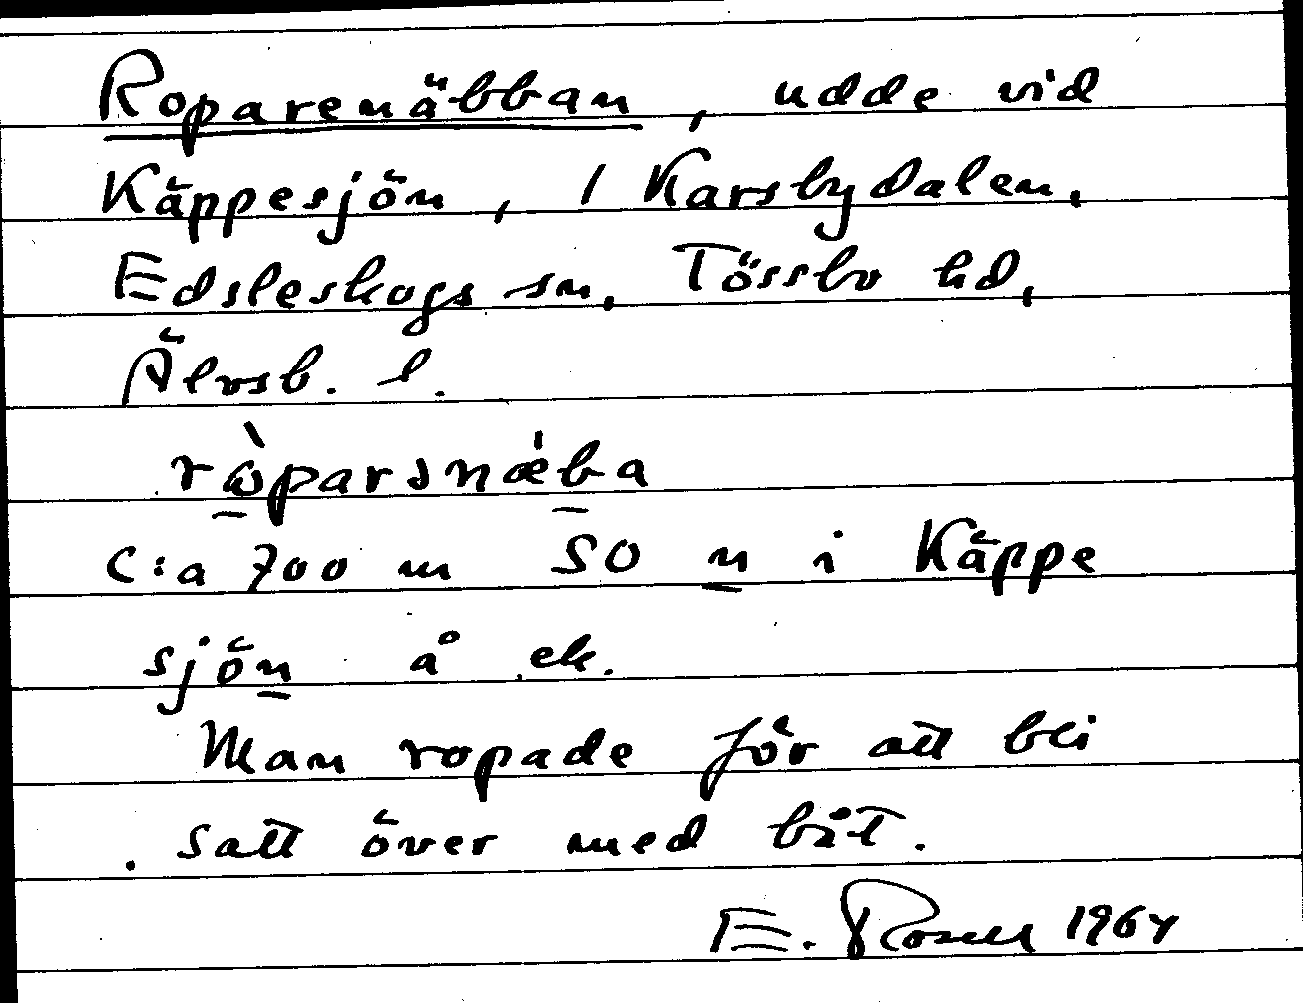 Roparenäbban, udde vid
Käppesjön, / Karsbydalen,
Edsleskogs sn, Tössbo hd,
Älvsb. l.
rὼparsnæ̍ba
C:a 700 m SO n i Käppe
sjön å ek.
Man ropade för att bli
satt över med båt.
E. Rosell 1964